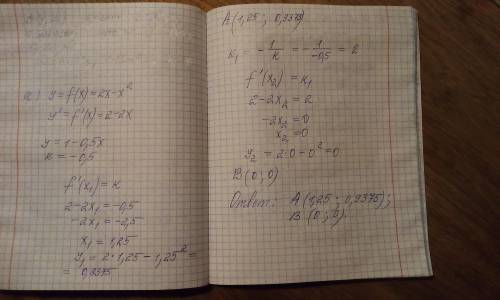 а) y = f(x) = 2x - x²
y' = f'(x) = 2 - 2x
y = 1 - 0,5x
k = - 0,5
f'(x₁) = k
2 - 2x₁ = -0,5
-2x₁ = -2,5
x₁ = 1,25
y₁ = 2 * 1,25 - 1,25² =
= 0,9375
A (1,25 ; 0,9375)
k₁ = - 1/k = - 1/-0,5 = 2
f'(x₂) = k₁
2 - 2x₂ = 2
-2x₂ = 0
x₂ = 0
y₂ = 2·0 - 0² = 0
B (0 ; 0)
Ответ: A (1,25 ; 0,9375);
B (0 ; 0).